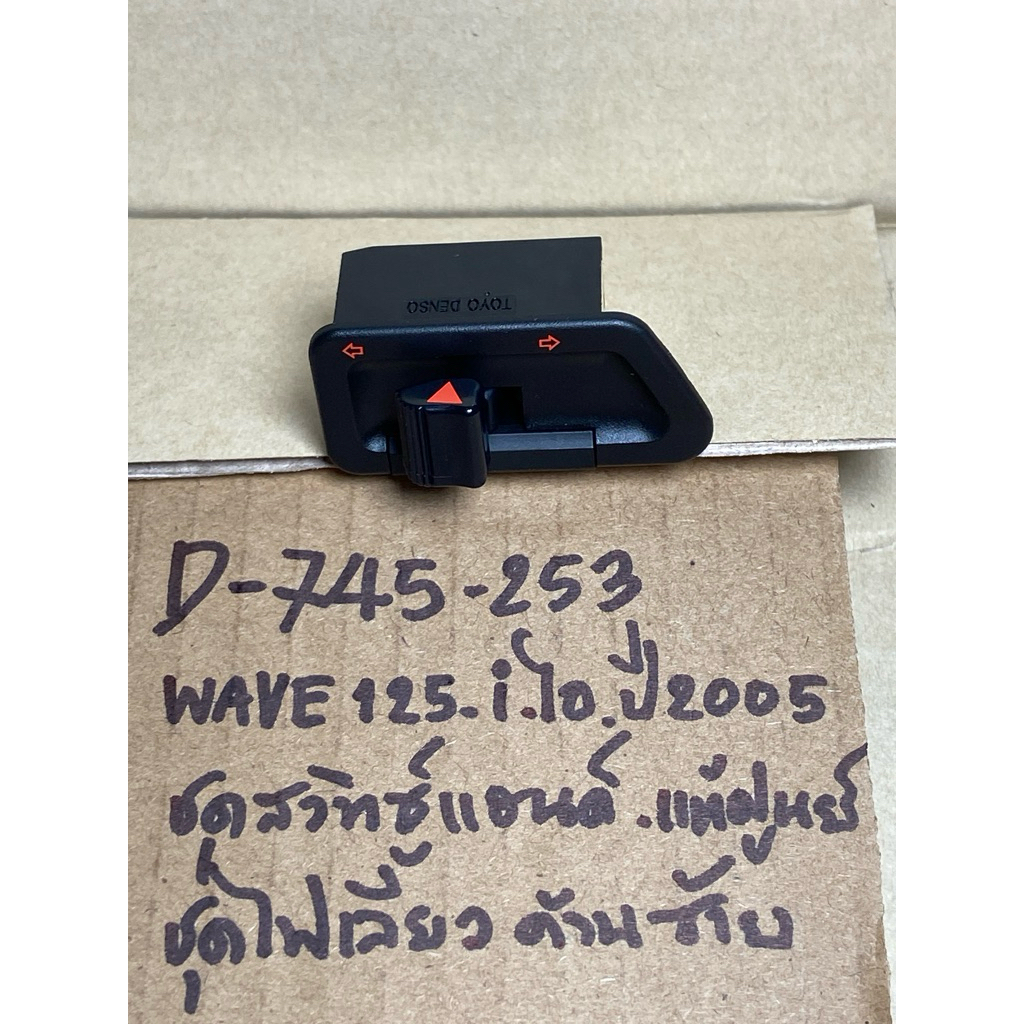 TOYO DENSO
D-745-253
WAVE 125.i.ไอ.ปี2005
ชุดสวิทซ์แฮนด์.แท้ศูนย์
ชุดไฟเลี้ยว ด้านซ้าย